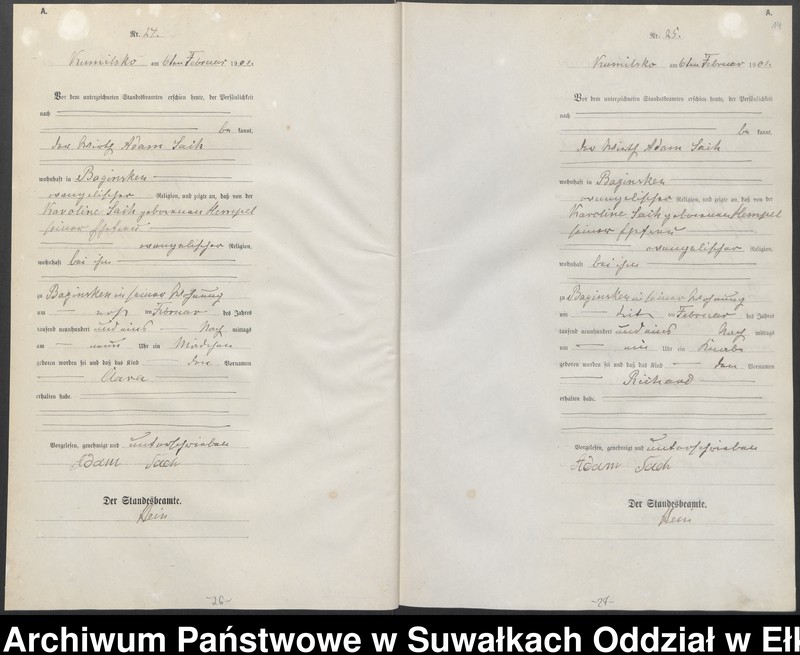 A.
Nr. 24.
Kumilsko am 6ten Februar 1901.
Vor dem unterzeichneten Standesbeamten erschien heute, der Persönlichkeit
nach
be kannt,
der Wirth Adam Sach
wohnhaft in Baginsken
evangelischer Religion, und zeigte an, daß von der
Karoline Sach geborenen Hempel
seiner Ehefrau
evangelischer Religion,
wohnhaft bei ihm
zu Baginsken in seiner Wohnung
am Februar des Jahres
tausend neunhundert und eins Nach mittags
um neun Uhr ein Mädchen
geboren worden sei und daß das Kind den Vornamen
Clara
erhalten habe.
Vorgelesen, genehmigt und unterschrieben
Adam Sach
Der Standesbeamte.
Hein
-26-
A.
14
Nr. 25.
Kumilsko am 6ten Februar 1901.
Vor dem unterzeichneten Standesbeamten erschien heute, der Persönlichkeit
nach
be kannt,
der Wirth Adam Sach
wohnhaft in Baginsken
evangelischer Religion, und zeigte an, daß von der
Karoline Sach geborenen Hempel
seiner Ehefrau
evangelischer Religion,
wohnhaft bei ihm
zu Baginsken in seiner Wohnung
am Februar des Jahres
tausend neunhundert und eins Nach mittags
um Uhr ein Knabe
geboren worden sei und daß das Kind den Vornamen
Richard
erhalten habe.
Vorgelesen, genehmigt und unterschrieben
Adam Sach
Der Standesbeamte.
Hein
Archiwum Państwowe w Suwałkach Oddział w Ełk